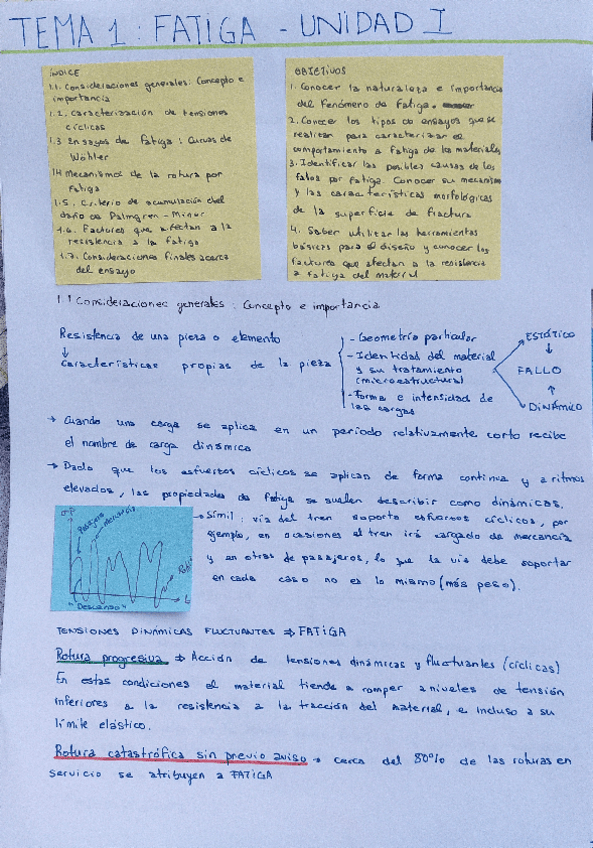 TEMA 1 : FATIGA - UNIDAD I
ÍNDICE
1.1. Consideraciones generales: Concepto e
importancia
1.2. Caracterización de tensiones
cíclicas
1.3 Ensayos de fatiga : Curvas de
Wöhler
1.4 Mecanismos de la rotura por
fatiga
1.5. Criterio de acumulación del
daño de Palmgren - Miner
1.6. Factores que afectan a la
resistencia a la fatiga
1.7. Consideraciones finales acerca
del ensayo
OBJETIVOS
1. Conocer la naturaleza e importancia
del Fenómeno de fatiga.
2. Conocer los tipos de ensayos que se
realizan para caracterizar el
comportamiento a fatiga de los materiales
3. Identificar las posibles causas de los
fallos por fatiga. Conocer su mecanismo
y las características morfológicas
de la superficie de fractura
4. Saber utilizar las herramientas
básicas para el diseño y conocer los
factores que afectan a la resistencia
a fatiga del material
1.1 Consideraciones generales : Concepto e importancia
Resistencia de una pieza o elemento
↓
Características propias de la pieza
- Geometría particular
- Identidad del material
y su tratamiento
(microestructural)
- Forma e intensidad de
las cargas
ESTÁTICO
↓
FALLO
↑
DINÁMICO
→ Cuando una carga se aplica en un período relativamente corto recibe
el nombre de carga dinámica
→ Dado que los esfuerzos cíclicos se aplican de forma continua y a ritmos
elevados, las propiedades de fatiga se suelen describir como dinámicas.
Pasajeros
mercancía
"Descanso"
t
→ Símil : vía del tren soporta esfuerzos cíclicos, por
ejemplo, en ocasiones el tren irá cargado de mercancía
y en otras de pasajeros, lo que la vía debe soportar
en cada caso no es lo mismo (más peso).
TENSIONES DINÁMICAS FLUCTUANTES ⇒ FATIGA
Rotura progresiva ⇒ Acción de tensiones dinámicas y fluctuantes (cíclicas)
En estas condiciones el material tiende a romper a niveles de tensión
inferiores a la resistencia a la tracción del material, e incluso a su
límite elástico.
Rotura catastrófica sin previo aviso → cerca del 80% de las roturas en
servicio se atribuyen a FATIGA